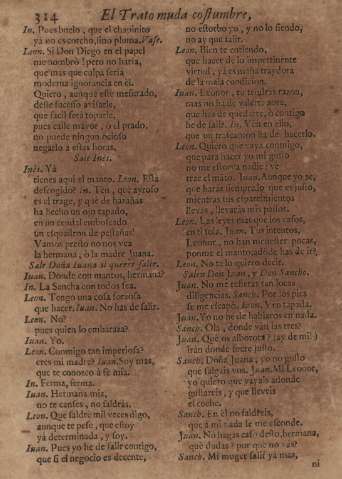 314 El Trato muda costumbre,
In. Pues buelo, que el chapinito
ya no es corcho, sino pluma. Vase.
Leon. Si Don Diego en el papel
me nombrò? pero no haria,
que mas que culpa seria
moderna ignorancia en èl.
Quiero, aunque este mesurado,
deste sucesso avisarle,
que facil serà toparle,
pues calle mayor, ò el prado,
no puede ningun ocioso
negarlo a estas horas.
Sale Inès.
Inès. Yà
tienes aqui el manto. Leon. Està
descogido? In. Ten, que ayroso
es el trage, y què de hazañas
ha hecho un ojo tapado,
en un cendal emboscado
un esquadron de pestañas!
Vamos presto no nos vea
la hermana, ò la madre Juana.
Sale Doña Juana al querer salir.
Juan. Donde con mantos, hermana?
In. La Sancha con todos sea.
Leon. Tengo una cosa forçosa
que hacer. Juan. No has de salir.
Leon. No?
pues quien lo embaraza?
Juan. Yo.
Leon. Conmigo tan imperiosa?
eres mi madre? Juan. Soy mas,
que te conozco à fè mia.
In. Ferma, ferma.
Juan. Hermana mia,
no te canses, no saldràs.
Leon. Que saldrè mil veces digo,
aunque te pese, que estoy
yà determinada, y soy.
Juan. Pues yo he de salir contigo,
que si el negocio es decente,
no estorbo yo, y no lo siendo,
no ay que salir.
Leon. Bien te entiendo,
que hacer de lo impertinente
virtud, yà es maña traydora
de la mala condicion.
Juan. Leonor, tu tendràs razon,
mas no ha de valerte aora,
que has de quedarte, ò contigo
he de salir. In. Vea en ello,
que un trascanton ha de hacerlo.
Leon. Quiero que vaya conmigo,
que para hacer yo mi gusto
no me estorva nadie: vè
trae el manto. Juan. Aunque yo sè,
que haràs siempre lo que es justo,
mientras tus esparcimientos
llevas, llevaràs mis passos.
Leon. Las leyes casi que los casos,
en ti sola. Juan. Tus intentos,
Leonor, no han menester pocas,
ponme el manto, adonde has de ir?
Leon. No te lo quiero decir.
Salen Don Juan, y Don Sancho.
Juan. No me refieras tan locas
diligencias. Sanch. Por Dios pira
se me escapò. Leon. Y en tapada.
Juan. Yo no he de hablaros en nada.
Sanch. Ola, donde vàn las tres?
Juan. Què os alboroto? (ay de mi!)
iràn donde fuere justo.
Sanch. Doña Juana, yo no gusto
que salgais vos. Juan. Mi Leonor,
yo quiero que vayais adonde
gustareis, y que lleveis
el coche.
Sanch. En èl no saldreis,
que à mi nada se me esconde.
Juan. No hagas caso desto, hermana,
què dudas? par no vàs?
Sanch. Mi muger salir ya mas,
ni